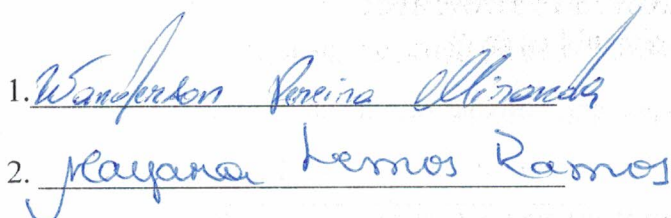 1. Wanderson Pereira Miranda
2. Mayara Lemos Ramos